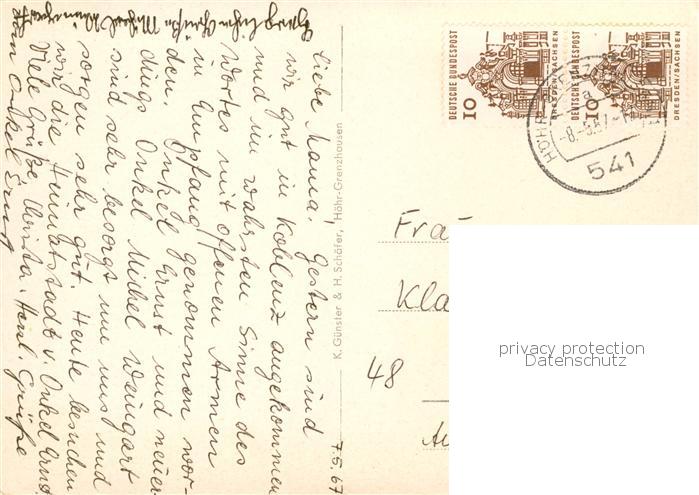 7.5.67
Liebe Mama! Gestern sind
wir gut in Koblenz angekommen
und im wahrsten Sinne des
Wortes mit offenen Armen
in Empfang genommen wor-
den. Onkel Ernst und neuer-
dings Onkel Michel Weingart
sind sehr besorgt um uns und
sorgen sehr gut. Heute besuchen
wir die Heimatstadt v. Onkel Ernst.
Viele Grüße Christa. Herzl. Grüße
Onkel Ernst
Grüße Michel
K. Günster & H. Schäfer, Höhr-Grenzhausen
DEUTSCHE BUNDESPOST
10
DRESDEN/SACHSEN
DEUTSCHE BUNDESPOST
10
DRESDEN/SACHSEN
HÖHR
541
Frau
Kla
48
privacy protection
Datenschutz